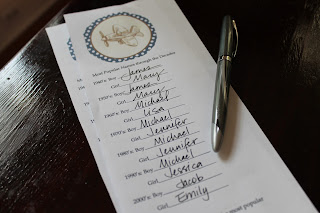 Most Popular Names through the Decades
1940's: Boy James
Girl Mary
1950's: Boy James
Girl Mary
1960's: Boy Michael
Girl Lisa
1970's: Boy Michael
Girl Jennifer
1980's: Boy Michael
Girl Jennifer
1990's: Boy Michael
Girl Jessica
2000's: Boy Jacob
Girl Emily
most popular